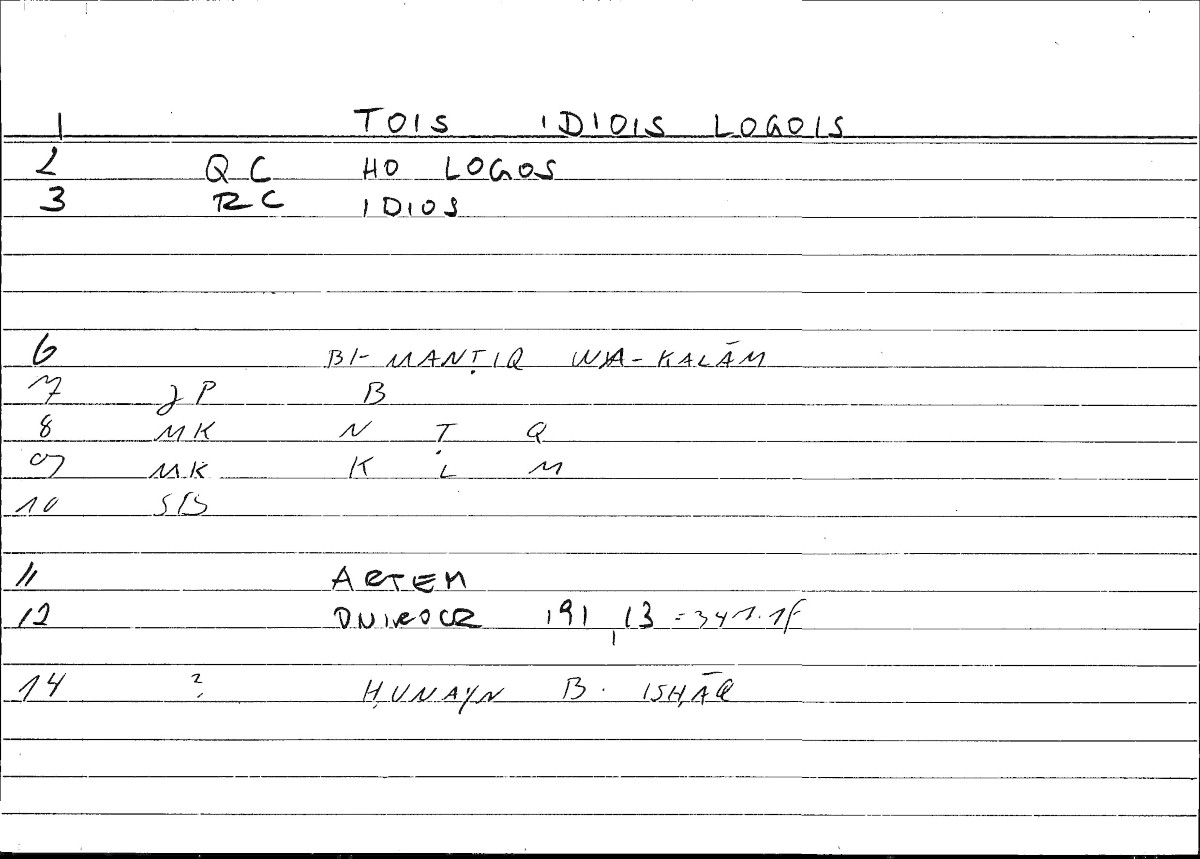 1 TOIS IDIOIS LOGOIS
2 QC HO LOGOS
3 RC IDIOS
6 BI-MANṬIQ WA-KALĀM
7 JP B
8 MK N Ṭ Q
9 MK K L M
10 SB
11 ARTEM
12 ONIROCR 191,13 = 347.1f
14 ? ḤUNAYN B. ISḤĀQ